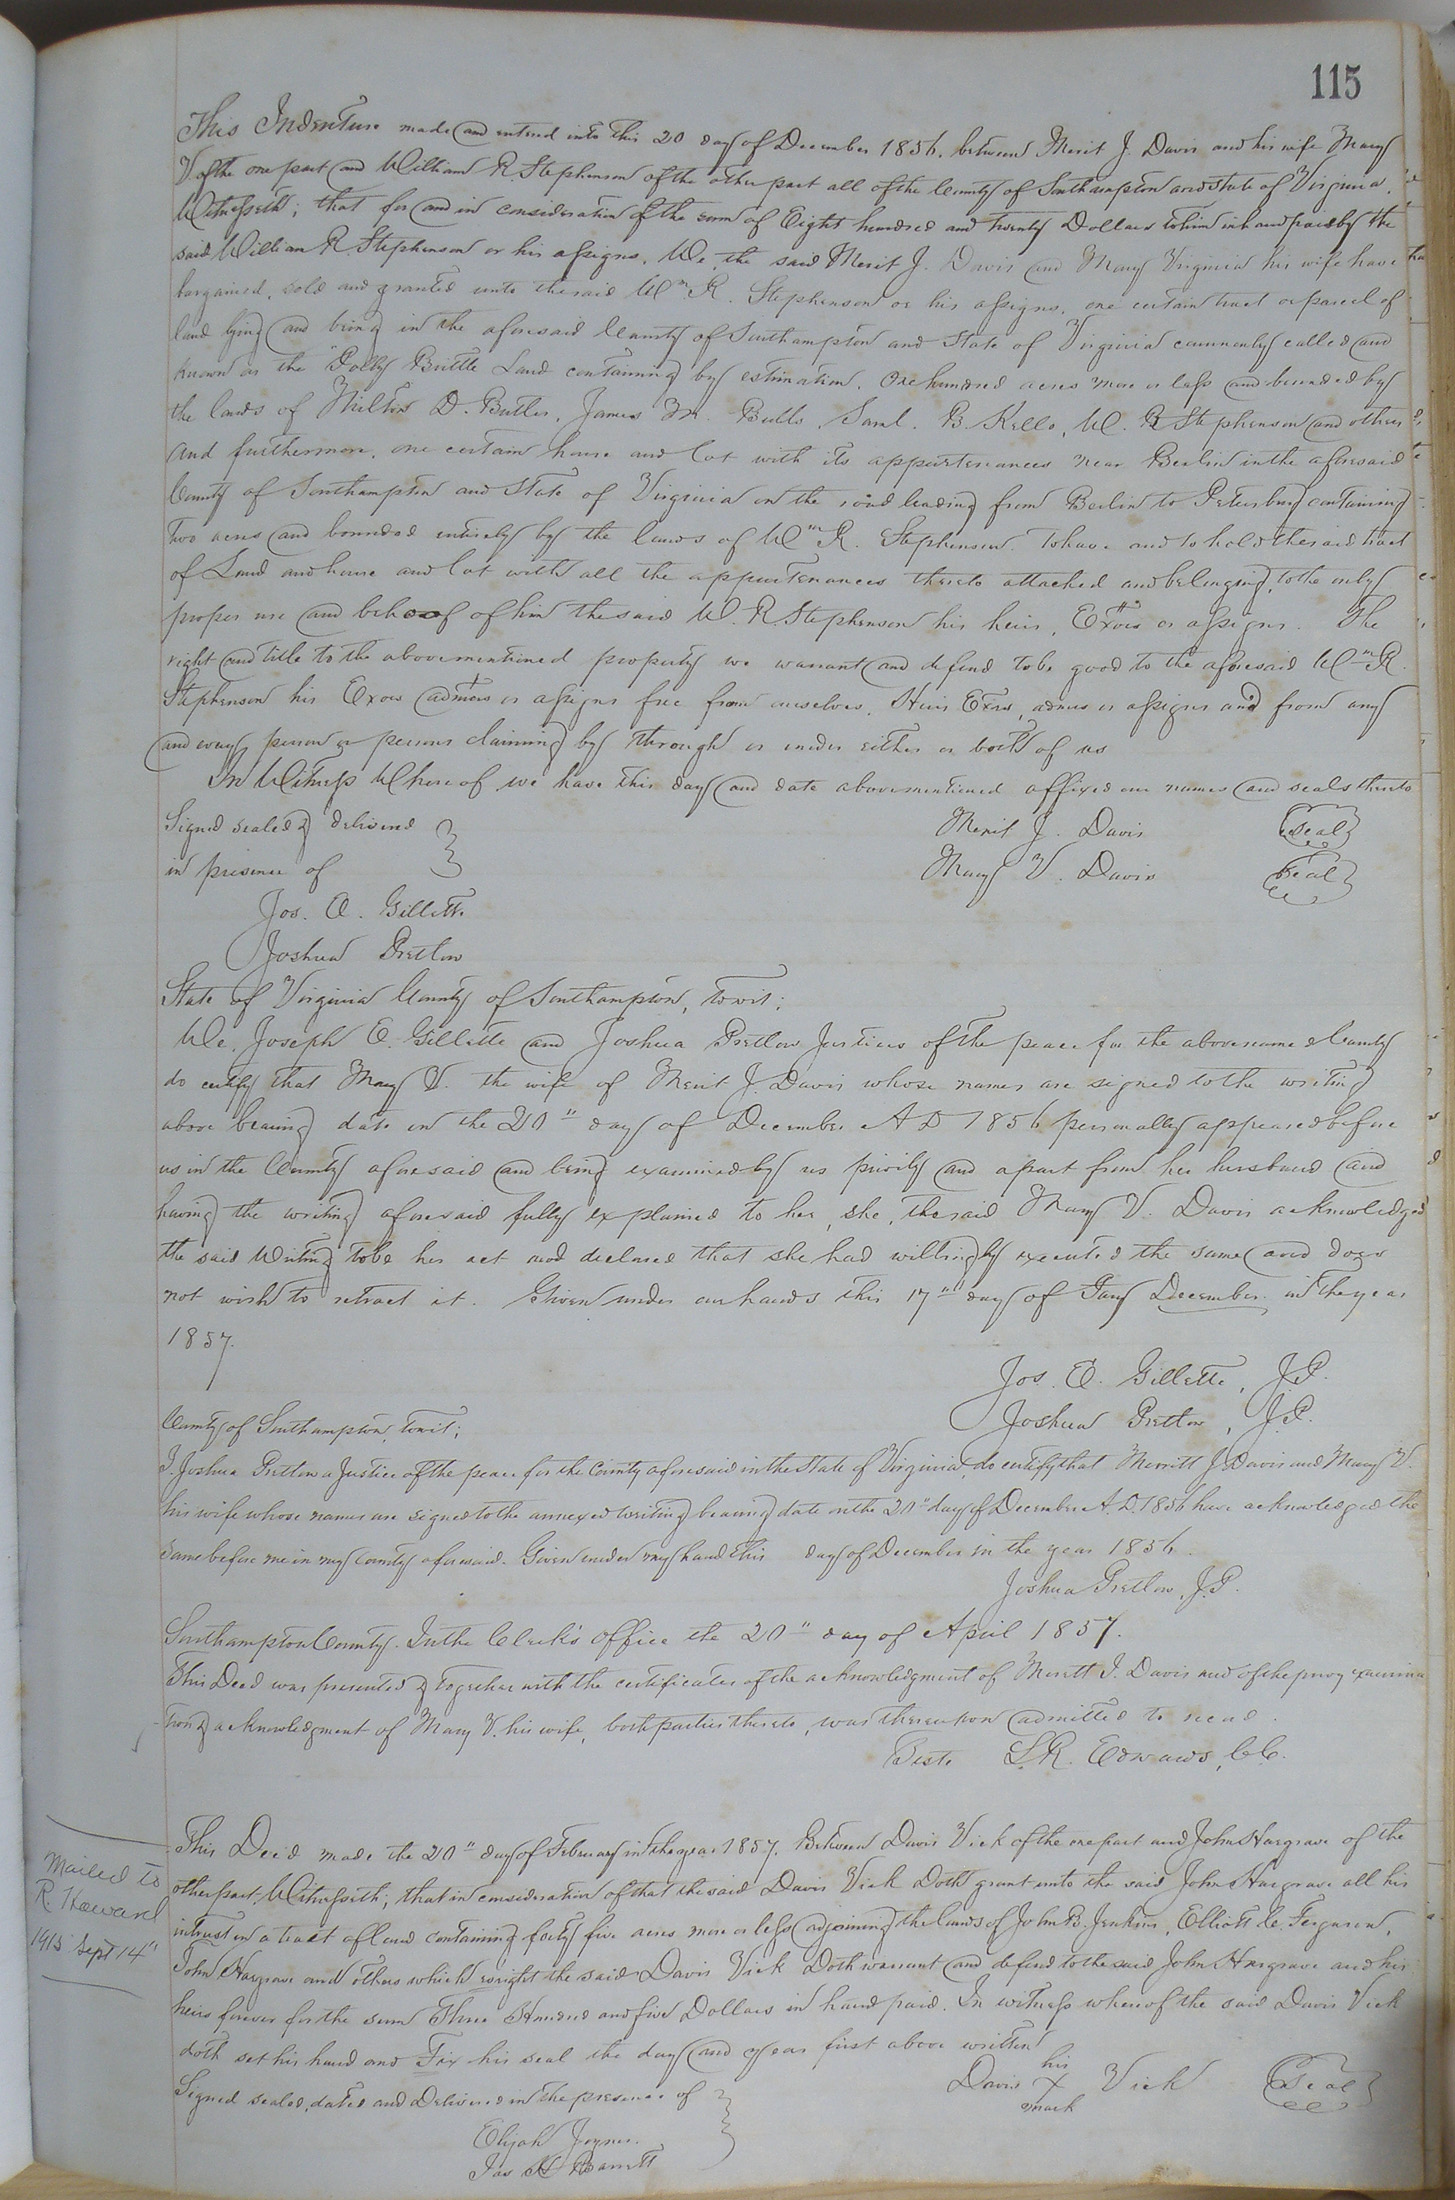 115
This Indenture made and entered into this 20 day of December 1856. between Merit J. Davis and his wife Mary
V of the one part and William R. Stephenson of the other part all of the County of Southampton and State of Virginia.
Witnesseth; that for and in consideration of the sum of Eight hundred and twenty Dollars to him in hand paid by the
said William R. Stephenson or his assigns, We, the said Merit J. Davis and Mary Virginia his wife have
bargained, sold and granted unto the said Wm R. Stephenson or his assigns, one certain tract or parcel of
land lying and being in the aforesaid County of Southampton and State of Virginia commonly called and
known as the Polly Brittle Land containing by estimation, One hundred acres more or less and bounded by
the lands of Milton D. Butler, James M. Butts, Saml. B. Kello, W. R Stephenson and others
And furthermore, one certain house and lot with its appurtenances near Berlin in the aforesaid
County of Southampton and State of Virginia on the road leading from Berlin to Petersburg containing
two acres and bounded entirely by the lands of Wm R. Stephenson. To have and to hold the said tract
of Land and house and lot with all the appurtenances thereto attached and belonging, to the only
proper use and behoof of him the said W. R. Stephenson his heirs, Exors or assigns. The
right and title to the abovementioned property we warrant and defend to be good to the aforesaid Wm R.
Stephenson his Exors admors or assigns free from ourselves, Heirs Exrs, admrs or assigns and from any
and every person or persons claiming by through or under either or both of us
In Witness Whereof we have this day and date abovementioned affixed our names and seals thereto
Signed sealed & delivered Merit J. Davis Seal
in presence of Mary V. Davis Seal
Jos. E. Gillette
Joshua Pretlow
State of Virginia County of Southampton, towit;
We, Joseph E. Gillette and Joshua Pretlow Justices of the peace for the abovenamed County
do certify that Mary V. the wife of Merit J. Davis whose names are signed to the writing
above bearing date on the 20" day of December A D 1856 personally appeared before
us in the County aforesaid and being examined by us privily and apart from her husband and
having the writing aforesaid fully explained to her, she, the said Mary V. Davis acknowledged
the said Writing to be her act and declared that she had willingly executed the same and does
not wish to retract it. Given under our hands this 17" day of Jany December in the year
1857.
Jos. E. Gillette, J.P.
Joshua Pretlow, J.P.
County of Southampton, towit;
I. Joshua Pretlow a Justice of the peace for the County aforesaid in the State of Virginia, do certify that Merritt J. Davis and Mary V.
his wife whose names are signed to the annexed writing bearing date on the 20" day of December A.D. 1856 have acknowledged the
same before me in my County aforesaid. Given under my hand this day of December in the year 1856.
Joshua Pretlow, J.P.
Southampton County. In the Clerk's Office the 20" day of April 1857.
This Deed was presented & together with the certificates of the acknowledgment of Merritt J. Davis and of the privy examina
tion & acknowledgment of Mary V. his wife, both parties thereto, was thereupon admitted to record.
Teste L. R. Edwards, C.C.
This Deed made the 20" day of February in the year 1857. Between Davis Vick of the one part and John Hargrave of the
other part, Witnesseth; that in consideration of that the said Davis Vick Doth grant unto the said John Hargrave all his
intrust in a tract of land containing forty five acres more or less adjoining the lands of John B. Jenkins, Elliott C. Ferguson,
John Hargrave and others which right the said Davis Vick Doth warrant and defend to the said John Hargrave and his
heirs forever for the sum Three Hundred and five Dollars in hand paid. In witness whereof the said Davis Vick
doth set his hand and Fix his seal the day and year first above written
Signed sealed, dated and Delivered in the presence of
his
Davis X Vick Seal
mark
Elijah Joyner.
Jas H Barrett
Mailed to
R. Howard
1915 Sept 14"